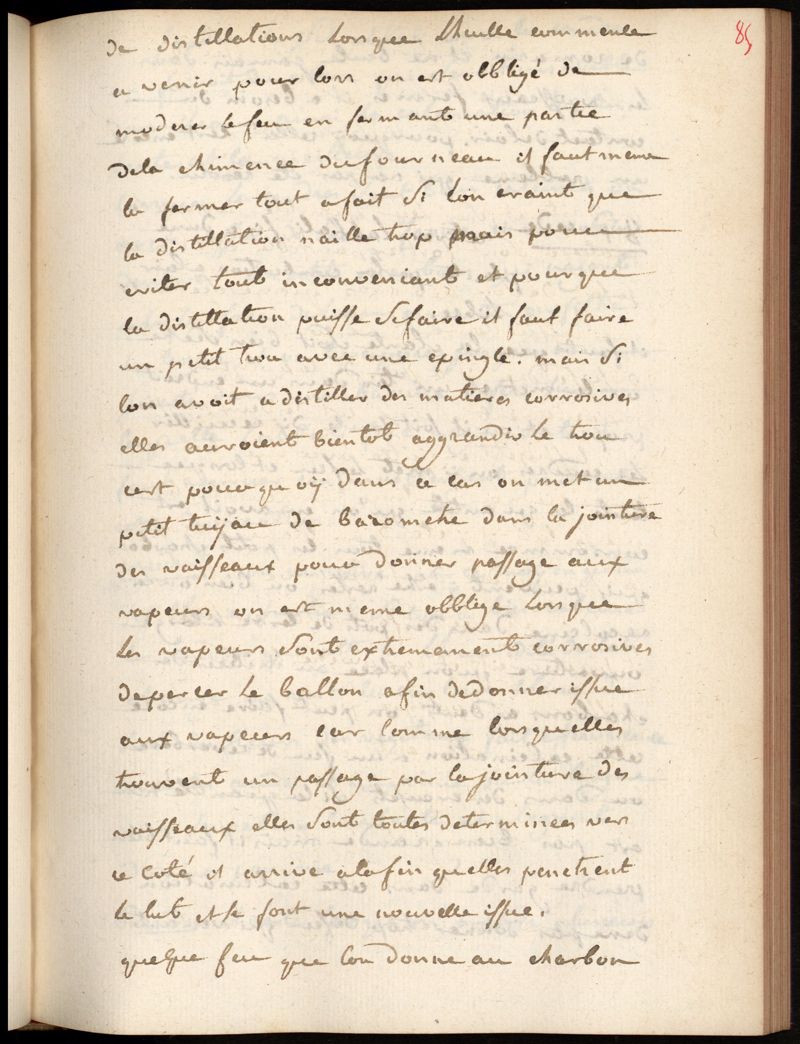 85
de distillations Lorsque Lheulle commence
a venir pour lors on est obbligé de
moderer le feu en fermant une partie
dela chimenee du fourneau il faut meme
la fermer tout afait si Lon craint que
la distillation naille trop mais pour
eviter tout inconveniant et pour que
la distillation puisse se faire il faut faire
un petit trou avec une epingle. mais si
lon avoit a distiller des matieres corrosives
elles auroient bientot aggrandir le trou
cest pourquoÿ dans ce cas on met un
petit tuÿau de barometre dans la jointure
des vaisseaux pour donner passage aux
vapeurs on est meme obblige Lorsque
les vapeurs sont extremament corrosives
de percer le ballon afin de donner issue
aux vapeurs car comme lorsquelles
trouvent un passage par la jointure des
vaisseaux elles sont toutes determinees vers
ce coté il arrive alafin quelles penetrent
le lut et se font une nouvelle issue.
quelque feu que lon donne au charbon